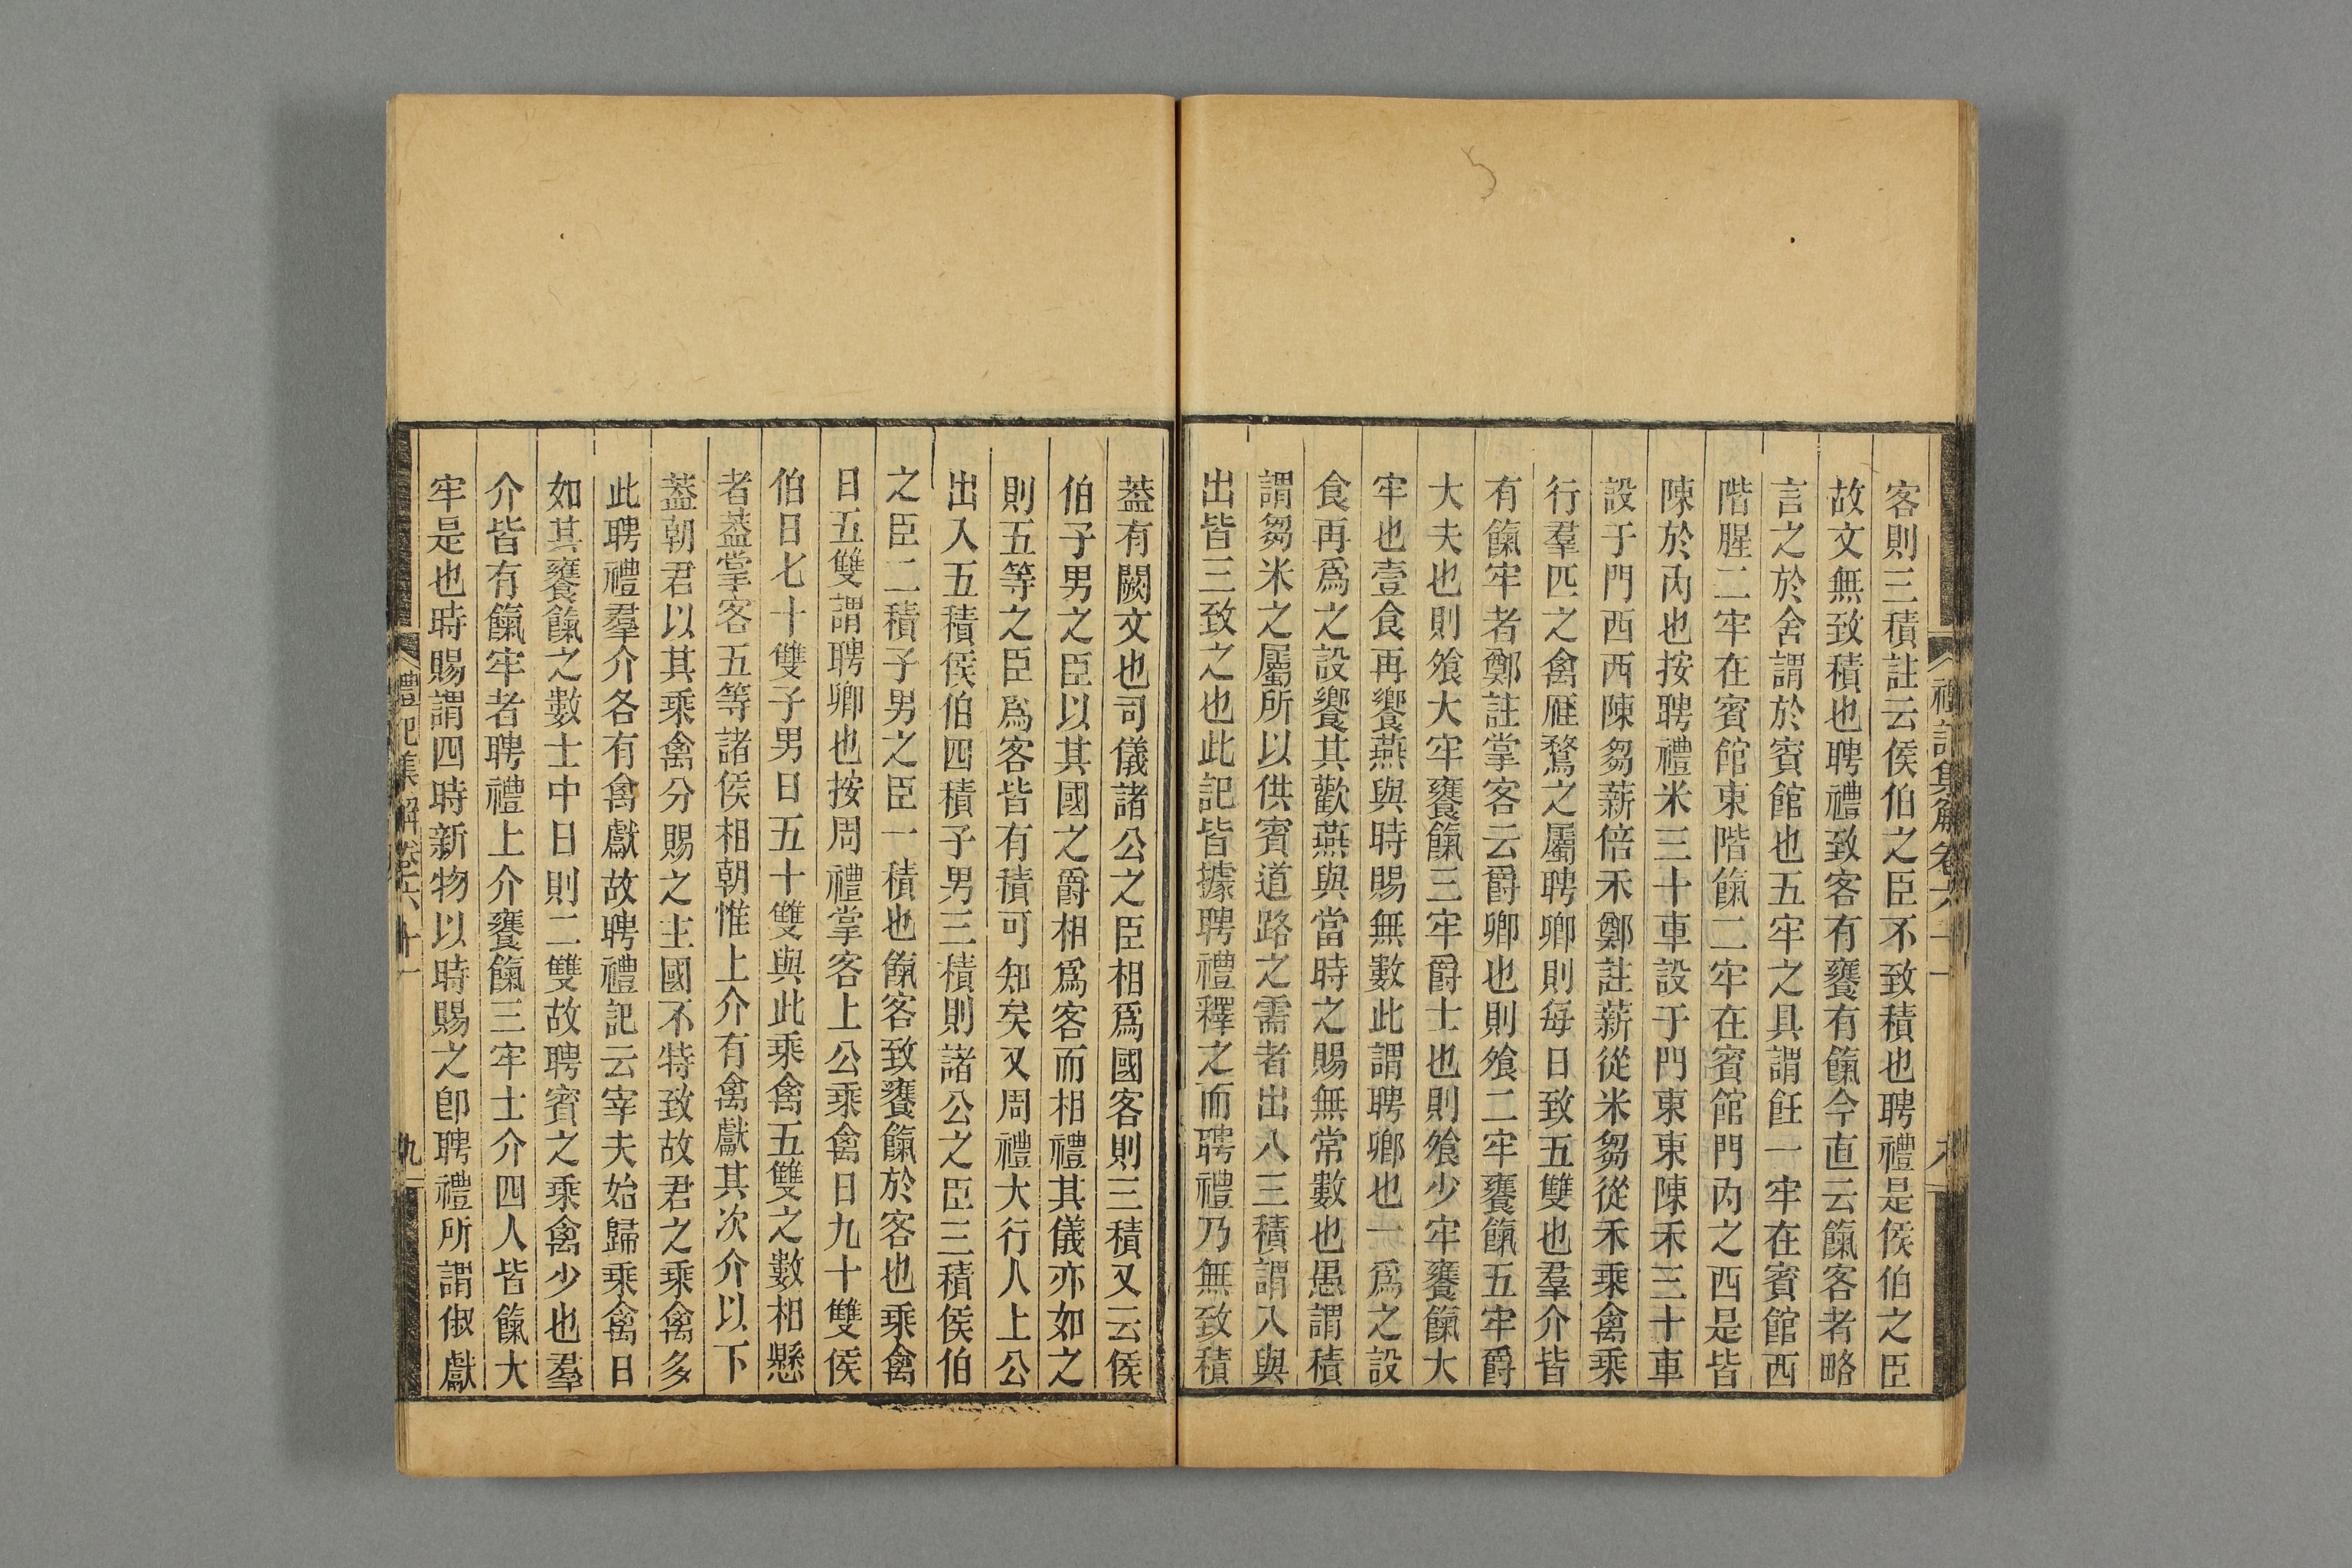 客則三積註云侯伯之臣不致積也聘禮是侯伯之臣
故文無致積也聘禮致客有饔有餼今直云餼客者略
言之於舍謂於賓館也五牢之具謂飪一牢在賓館西
階腥二牢在賓館東階餼二牢在賓館門內之西是皆
陳於內也按聘禮米三十車設于門東東陳禾三十車
設于門西西陳芻薪倍禾鄭註薪從米芻從禾乘禽乘
行羣匹之禽雁鶩之屬聘卿則每日致五雙也羣介皆
有餼牢者鄭註掌客云爵卿也則飧二牢饔餼五牢爵
大夫也則飧大牢饔餼三牢爵士也則飧少牢饔餼大
牢也壹食再饗燕與時賜無數此謂聘鄉也一爲之設
食再爲之設饗其歡燕與當時之賜無常數也愚謂積
謂芻米之屬所以供賓道路之需者出入三積謂入與
出皆三致之也此記皆據聘禮釋之而聘禮乃無致積
蓋有闕文也司儀諸公之臣相爲國客則三積又云侯
伯子男之臣以其國之爵相爲客而相禮其儀亦如之
則五等之臣爲客皆有積可知矣又周禮大行人上公
出入五積侯伯四積子男三積則諸公之臣三積侯伯
之臣二積子男之臣一積也餼客致饔餼於客也乘禽
日五雙謂聘卿也按周禮掌客上公乘禽日九十雙侯
伯日七十雙子男日五十雙與此乘禽五雙之數相懸
者蓋掌客五等諸侯相朝惟上介有禽獻其次介以下
蓋朝君以其乘禽分賜之主國不特致故君之乘禽多
此聘禮羣介各有禽獻故聘禮記云宰夫始歸乘禽日
如其饔餼之數士中日則二雙故聘賓之乘禽少也羣
介皆有餼牢者聘禮上介饔餼三牢士介四人皆餼大
牢是也時賜謂四時新物以時賜之卽聘禮所謂俶獻
禮記集解卷六十一
九